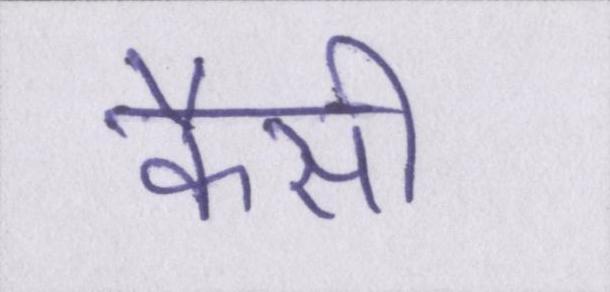 कैसी